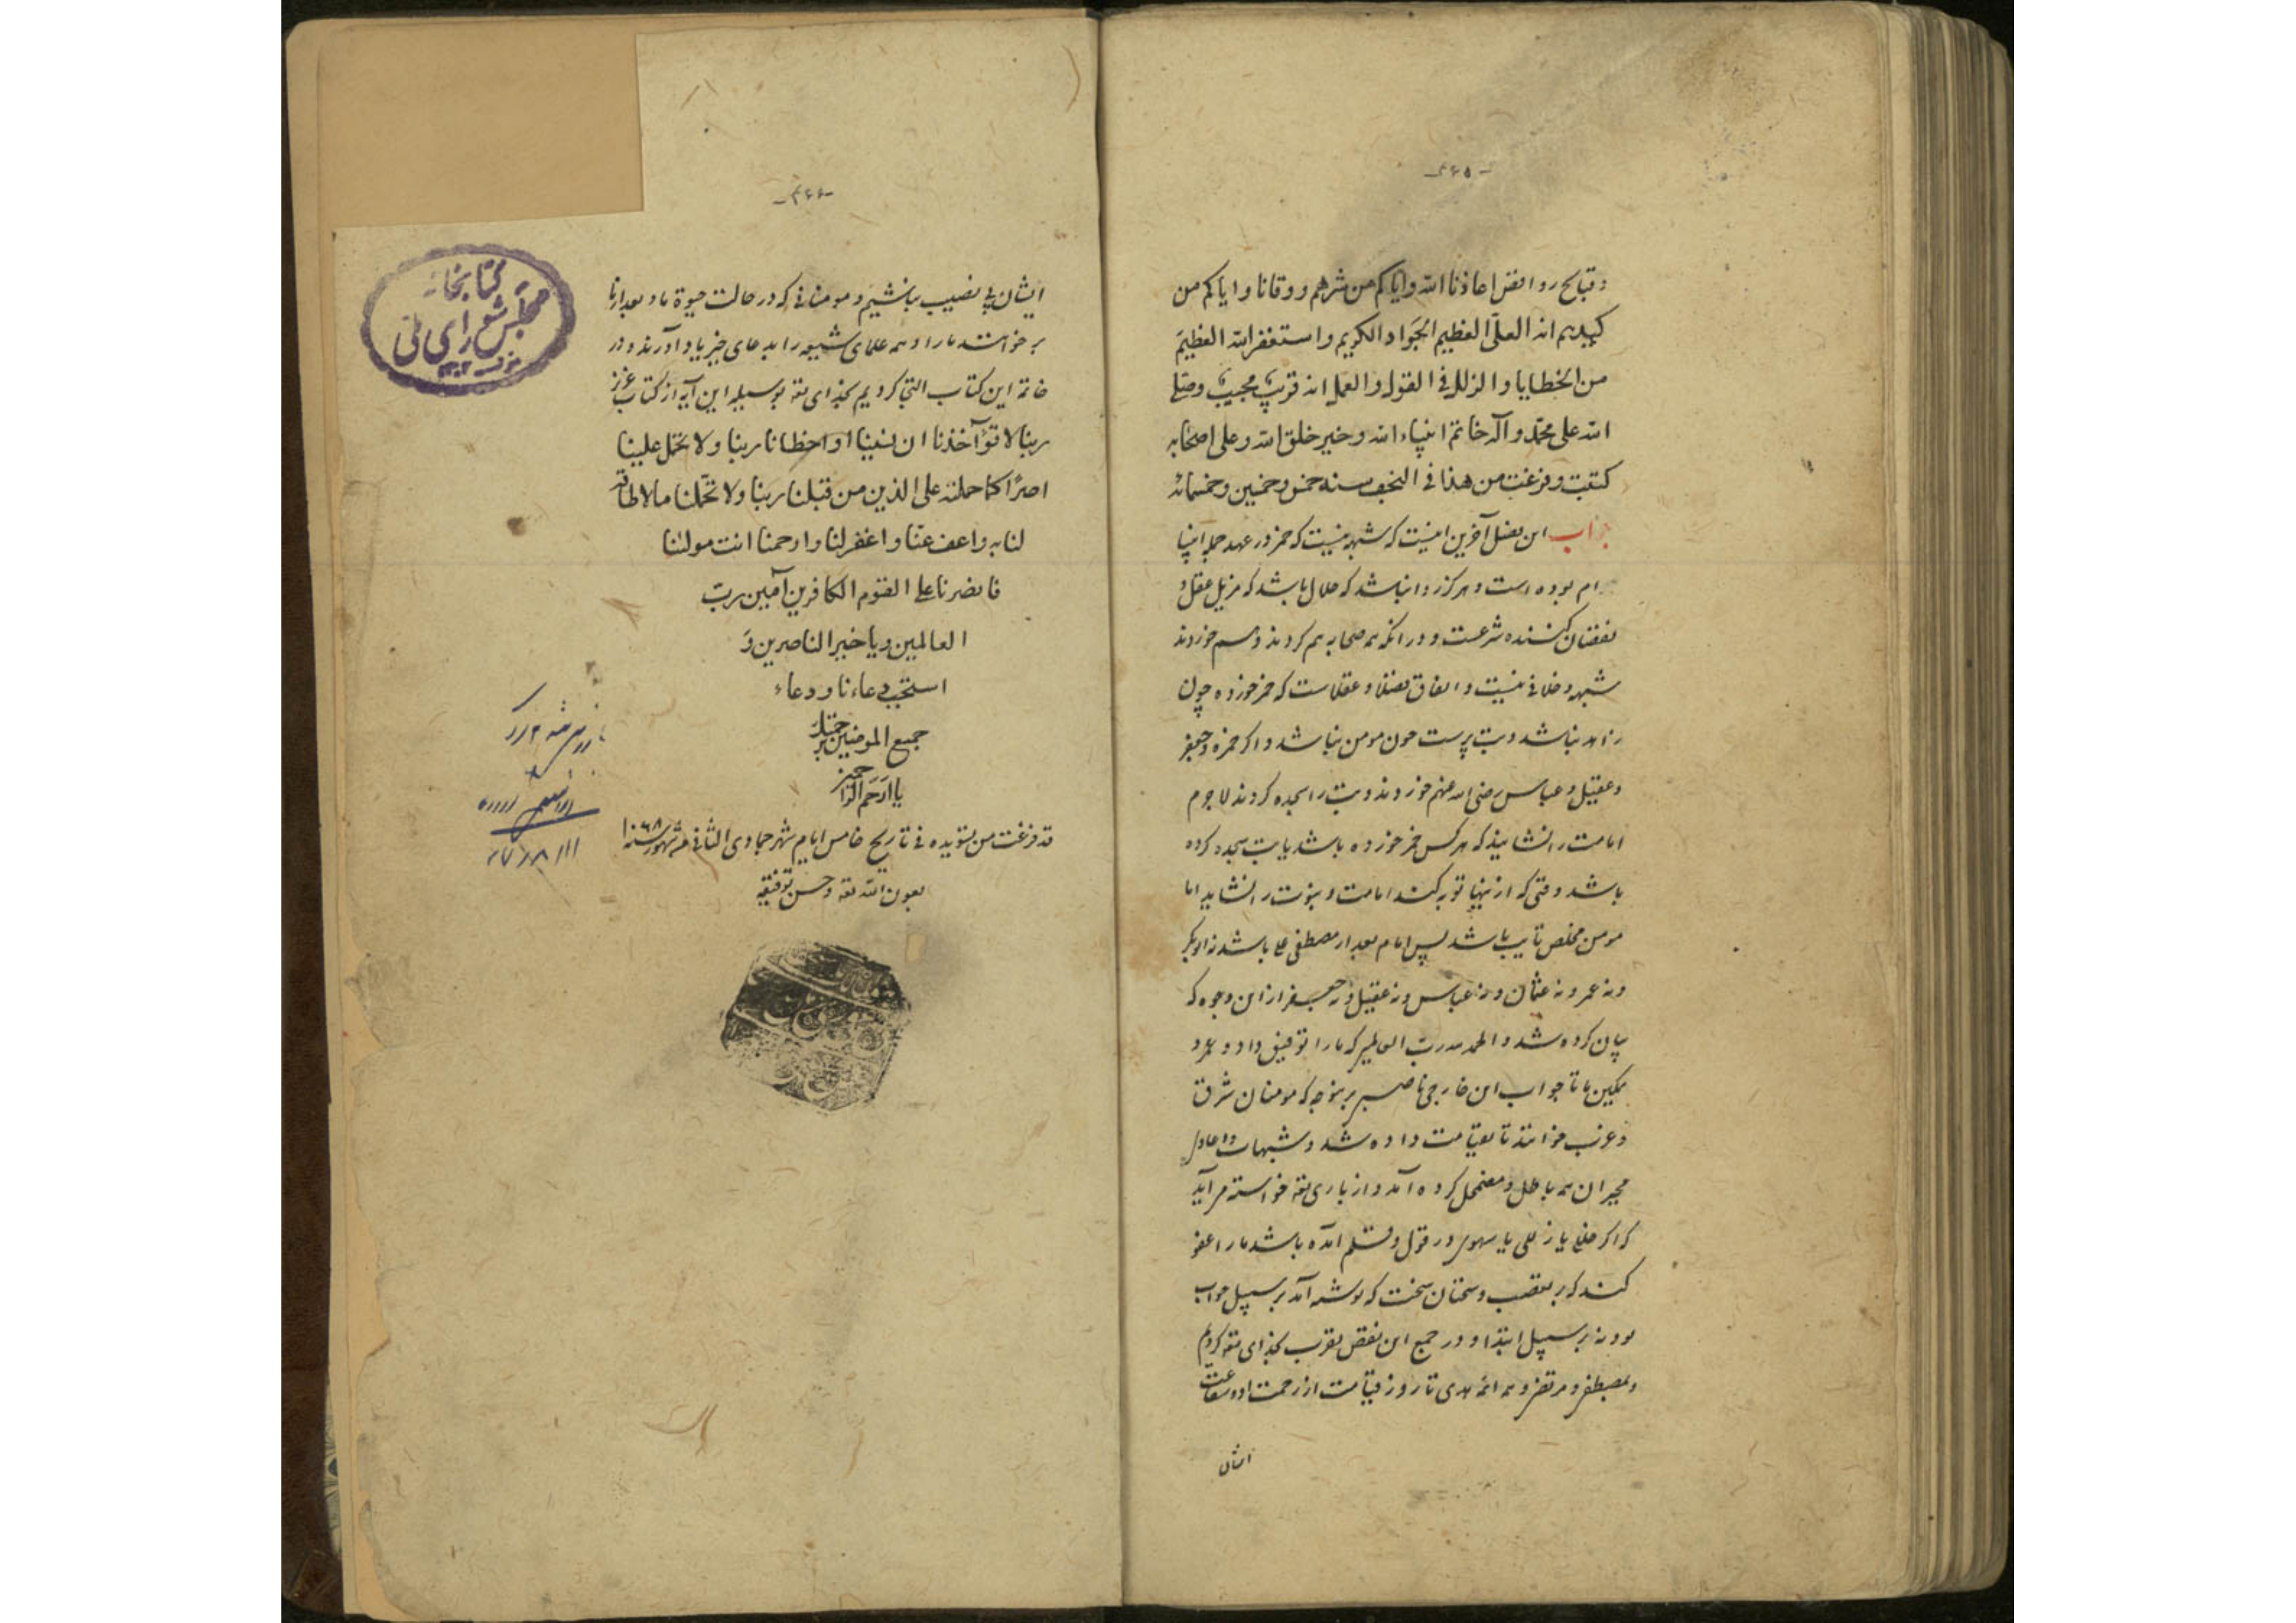 -۴۶۵-
و قبایح روافض اعاذنا الله وایاکم من شرهم و وقانا و ایاکم من
کیدهم انه العلی العظیم الجَواد الکریم و استغفر الله العظیمَ
من الخطایا و الزلل فی القول و العمل انه قریبٌ مجیبٌ وصلی
الله علی محمّد و آله خاتم انبیاء الله و خیر خلق الله و علی اصحابه
کتبت و فرغت من هذا فی النجف سنه خمس و خمسین و خمسمائه
جواب این فصل آخرین اینست که شبهه نیست که خمر در عهد جمله انبیا
حرام بوده است و هرگز روا نباشد که حلال باشد که مزیل عقل و
نقصان کننده شرعست و در انکه همه صحابه هم کردند و هم خوردند
شبهه و خلافی نیست و اتفاق فضلا و عقلاست که خمر خورده چون
زاهد نباشد و بت پرست چون مومن نباشد و اکر حمزه و جعفر
و عقیل و عباس رضی الله عنهم خوردند و بت را سجده کردند لاجرم
امامت را نشایند که هر کس خمر خورده باشد یا بت سجده کرده
باشد وقتی که از اینها توبه کند امامت و نبوت را نشاید اما
مومن مخلص تایب باشد پس امام بعد از مصطفی علی باشد نه ابوبکر
و نه عمر و نه عثمان و نه عباس و نه عقیل و نه جعفر از این وجوه که
بیان کرده شد و الحمد لله رب العالمین که ما را توفیق داد و عمر و
تمکین ما تا جواب این خارجی ناصبی بر وجهی که مومنان شرق
و غرب خوانند تا بقیامت داده شد و شبهات و اعادل
مجبران همه باطل و مضمحل کرده آمد و از باری تعه خواسته می آید
که اگر خللی یا زللی یا سهوی در قول و قلم آمده باشد ما را عفو
کند که بر تعصب و سخنان سخت که نوشته آمد بر سبیل جواب
بود نه بر سبیل ابتدا و در جمع این نقض تقرب بخدای تعه کردیم
و بمصطفی و مرتضی و همه ائمه هدی تا روز قیامت از رحمت او و شفاعت
ایشان
-۴۶۶-
ایشان بی نصیب نباشیم و مومنانی که در حالت حیوة ما و بعد از ما
بر خوانند ما را و همه علمای شیعه را بدعای خیر یاد آورند و در
خاتمه این کتاب التجا کردیم بخدای تعه بوسیله این آیه از کتاب عزیز
ربنا لا تؤآخذنا ان نسینا او اخطانا ربنا و لا تحمل علینا
اصرًا کما حملته علی الذین من قبلنا ربنا و لا تحمّلنا ما لا طاقة
لنا به و اعف عنّا و اغفر لنا و ارحمنا انت مولنٰنا
فانصرنا علی القوم الکافرین آمین ربّ
العالمین و یا خیر الناصرین وَ
استجب دعاءنا و دعاء
جمیع المومنین برحمتک
یا ارحَمَ الراحمین
قد فرغت من تسویده فی تاریخ خامس ایام شهر جمادی الثانی من شهور سنه ۱۰۶۸
بعون الله تعه و حسن توفیقه
کتابخانه
مجلس شورای ملی